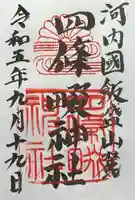 河内國飯盛山麓
四條畷神社
令和五年九月十九日